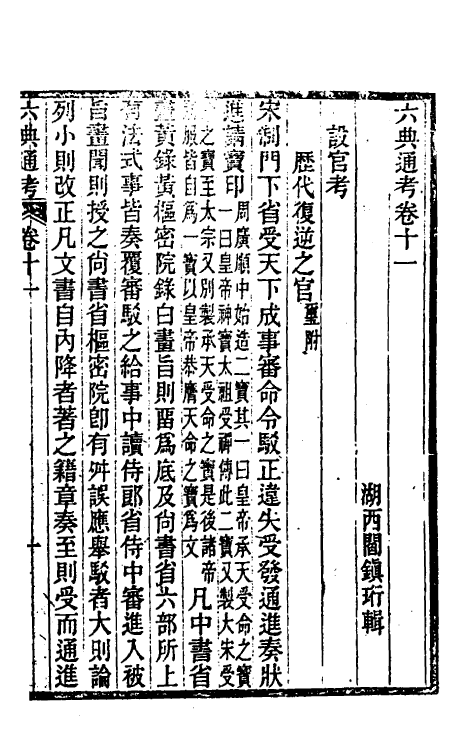 六典通考卷十一
湖西閻鎮珩輯
設官考
歷代復逆之官璽附
宋制門下省受天下成事審命令駁正違失受發通進奏狀
進請寶印周廣順中始造二寶其一曰皇帝承天受命之寶
一曰皇帝神寶太祖受禪傳此二寶又製大宋受
之寶至太宗又別製承天受命之寶是後諸帝
嗣服皆自爲一寶以皇帝恭膺天命之寶爲文凡中書省
畫黃錄黃樞密院錄白畫旨則留爲底及尙書省六部所上
有法式事皆奏覆審駁之給事中讀侍郞省侍中審進入被
旨畫聞則授之尙書省樞密院卽有舛誤應舉駁者大則論
列小則改正凡文書自內降者著之籍章奏至則受而通進
六典通考 卷十一 一